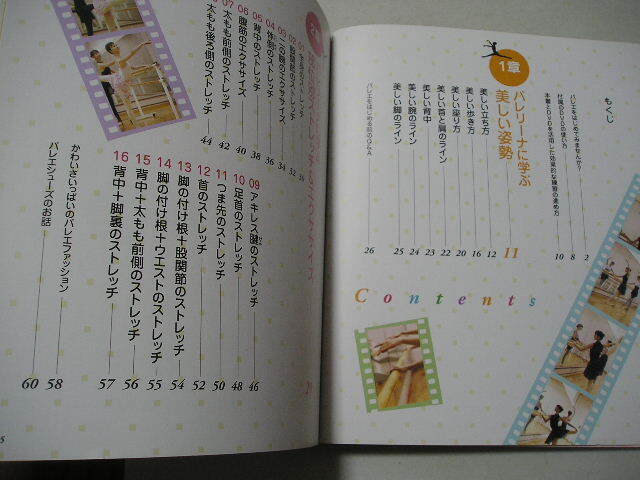 もくじ
バレエをはじめてみませんか? 2
付属のDVDの使い方 8
本書とDVDを活用した効果的な練習の進め方 10
1章
バレリーナに学ぶ
美しい姿勢 11
美しい立ち方 12
美しい歩き方 16
美しい座り方 20
美しい背中 22
美しい首と肩のライン 23
美しい腕のライン 24
美しい脚のライン 25
バレエをはじめる前のQ&A 26
Contents
2章
31
02 股関節のストレッチ
04 体側のストレッチ 36
05 背中のストレッチ 38
06 腹筋のエクササイズ 40
07 太もも前側のストレッチ 42
太もも後ろ側のストレッチ 44
09 アキレス腱のストレッチ 46
10 足首のストレッチ 48
11 つま先のストレッチ 50
12 首のストレッチ 52
13 脚の付け根+股関節のストレッチ 54
14 脚の付け根+ウエストのストレッチ 55
15 背中+太もも前側のストレッチ 56
16 背中+脚裏のストレッチ 57
かわいさいっぱいのバレエファッション 58
バレエシューズのお話 60
5